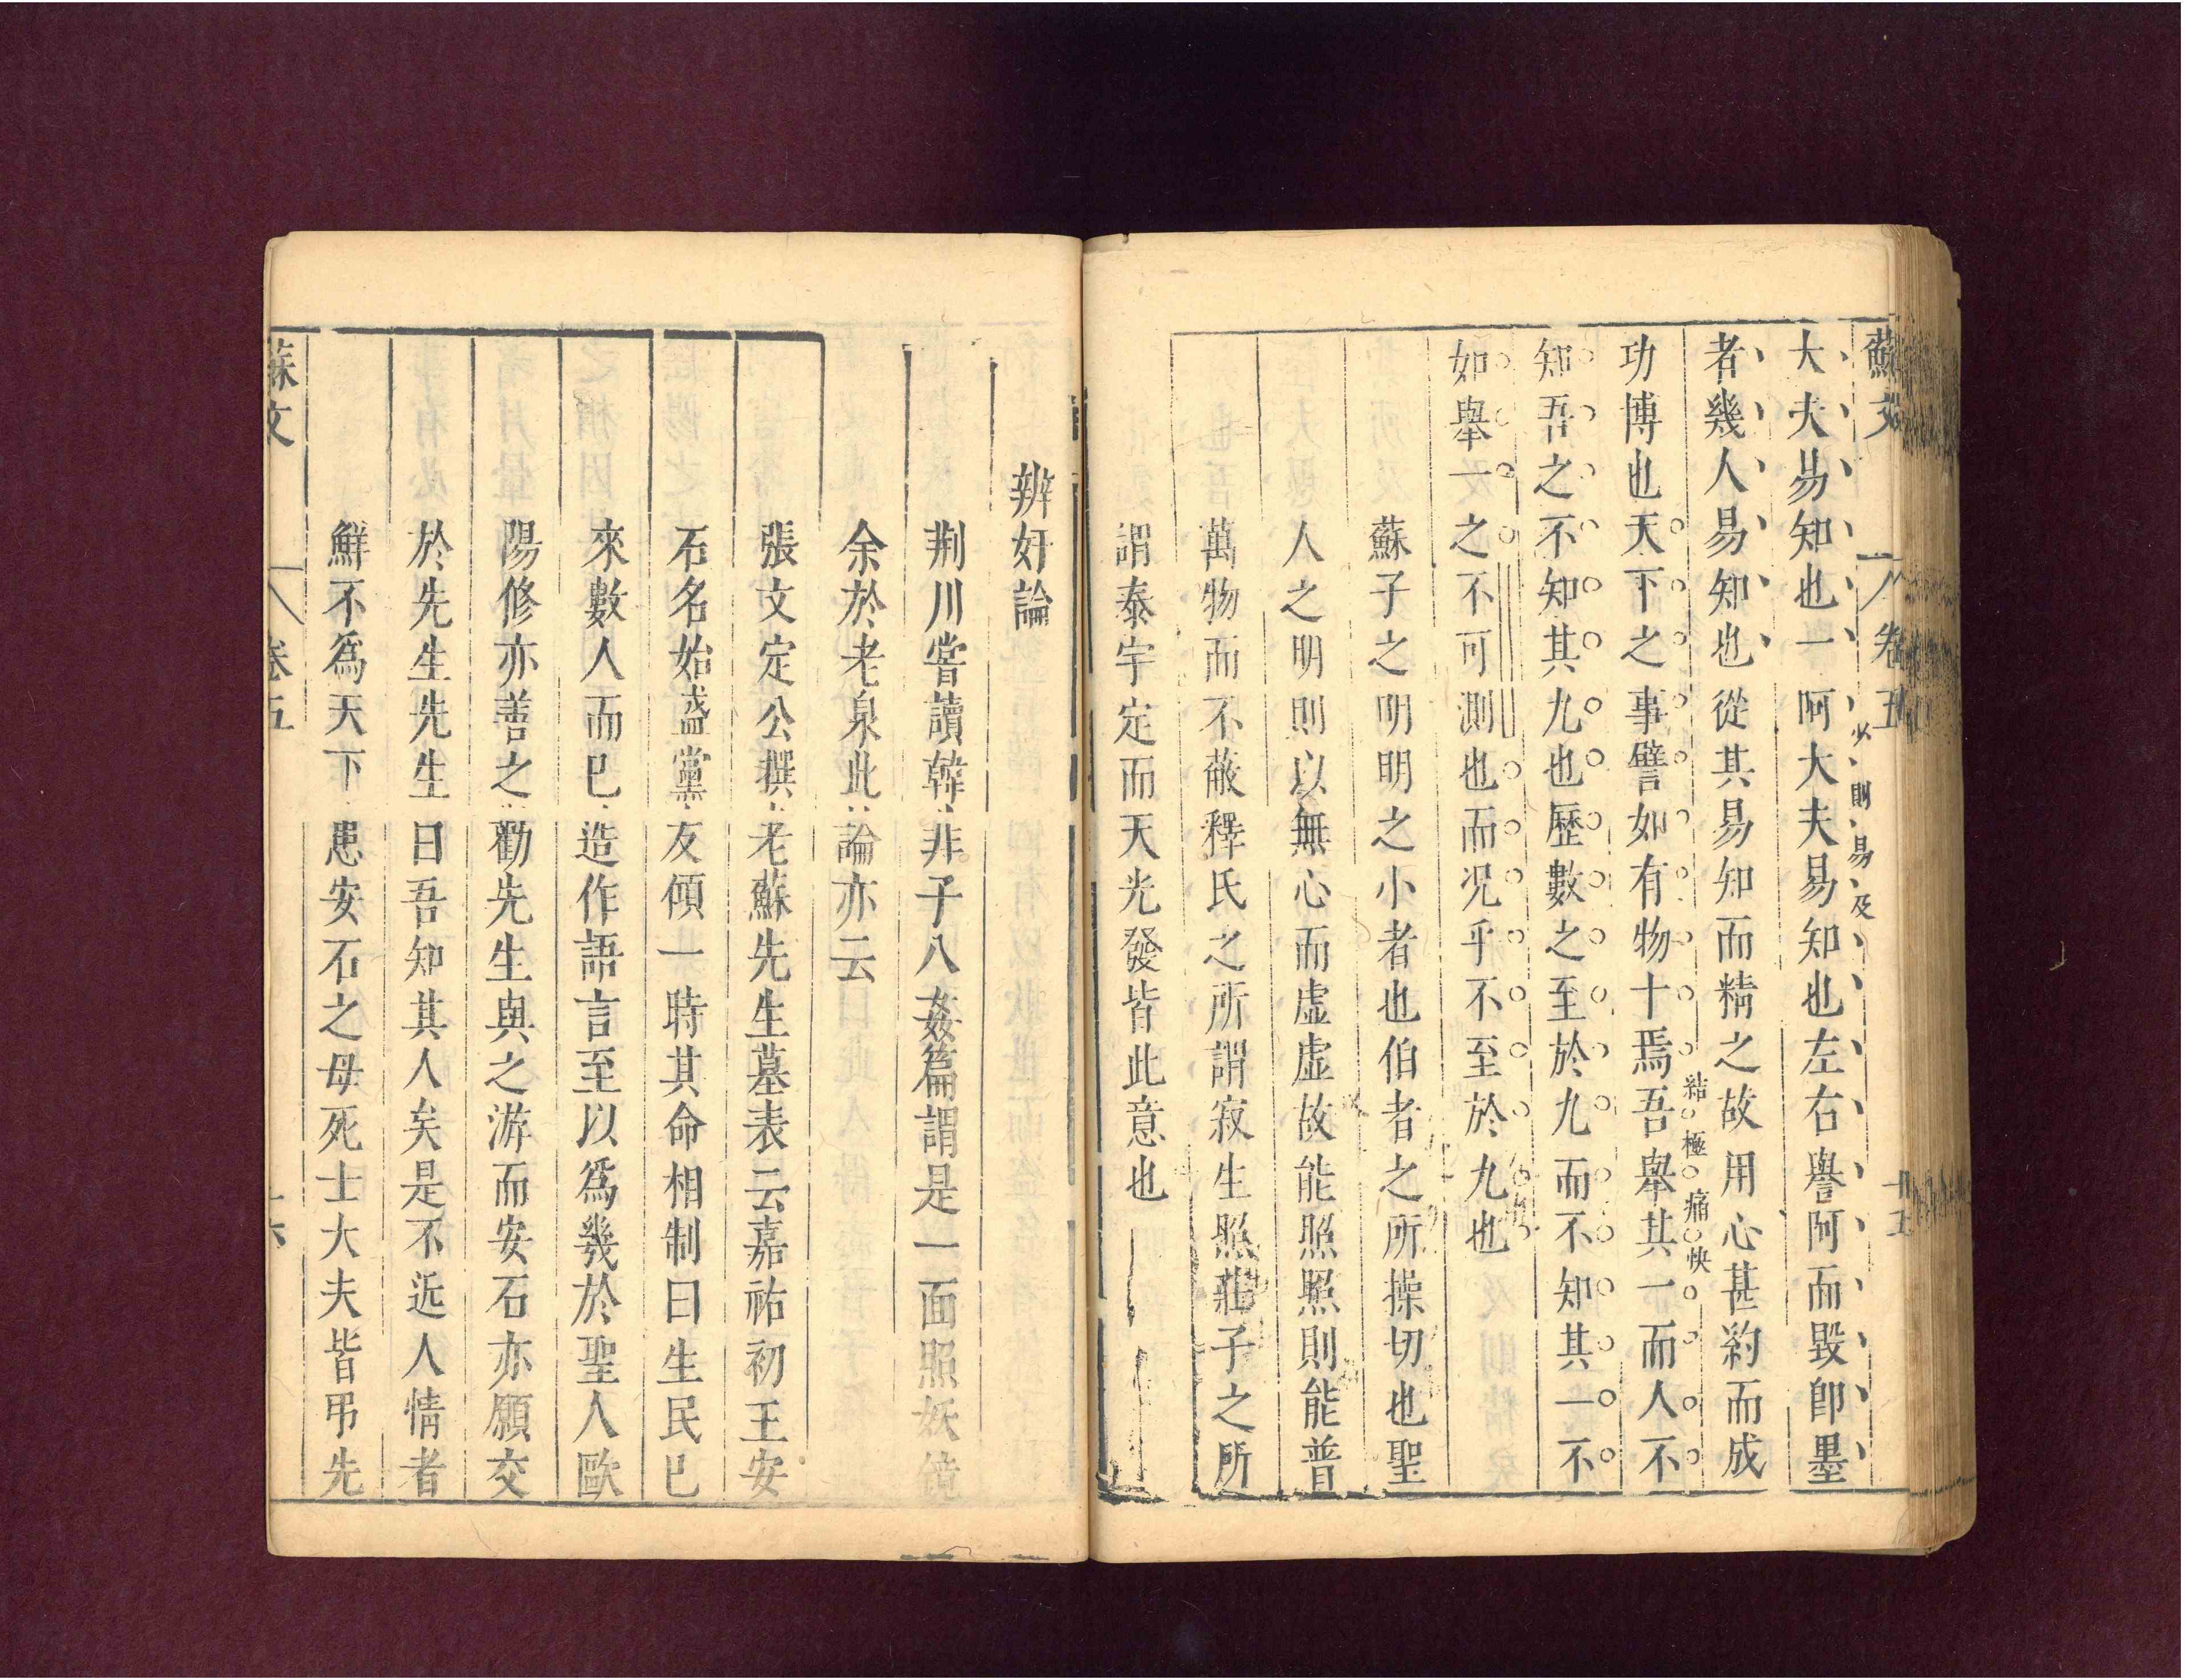 蘇文 卷五 十五
大夫易知也一阿大夫易知也左右譽阿而毀卽墨
必則易及
者幾人易知也從其易知而精之故用心甚約而成
功博也天下之事譬如有物十焉吾舉其一而人不
結極痛快
知吾之不知其九也歷數之至於九而不知其一不
如舉一之不可測也而况乎不至於九也
蘇子之明明之小者也伯者之所操切也聖
人之明則以無心而虛虛故能照照則能普
萬物而不蔽釋氏之所謂寂生照莊子之所
謂泰宇定而天光發皆此意也
辨奸論
荆川嘗讀韓非子八姦篇謂是一面照妖鏡
余於老泉此論亦云
張文定公撰老蘇先生墓表云嘉祐初王安
石名始盛黨友傾一時其命相制曰生民已
來數人而已造作語言至以爲幾於聖人歐
陽修亦善之勸先生與之游而安石亦願交
於先生先生曰吾知其人矣是不近人情者
鮮不爲天下患安石之母死士大夫皆弔先
蘇文 卷五 十六